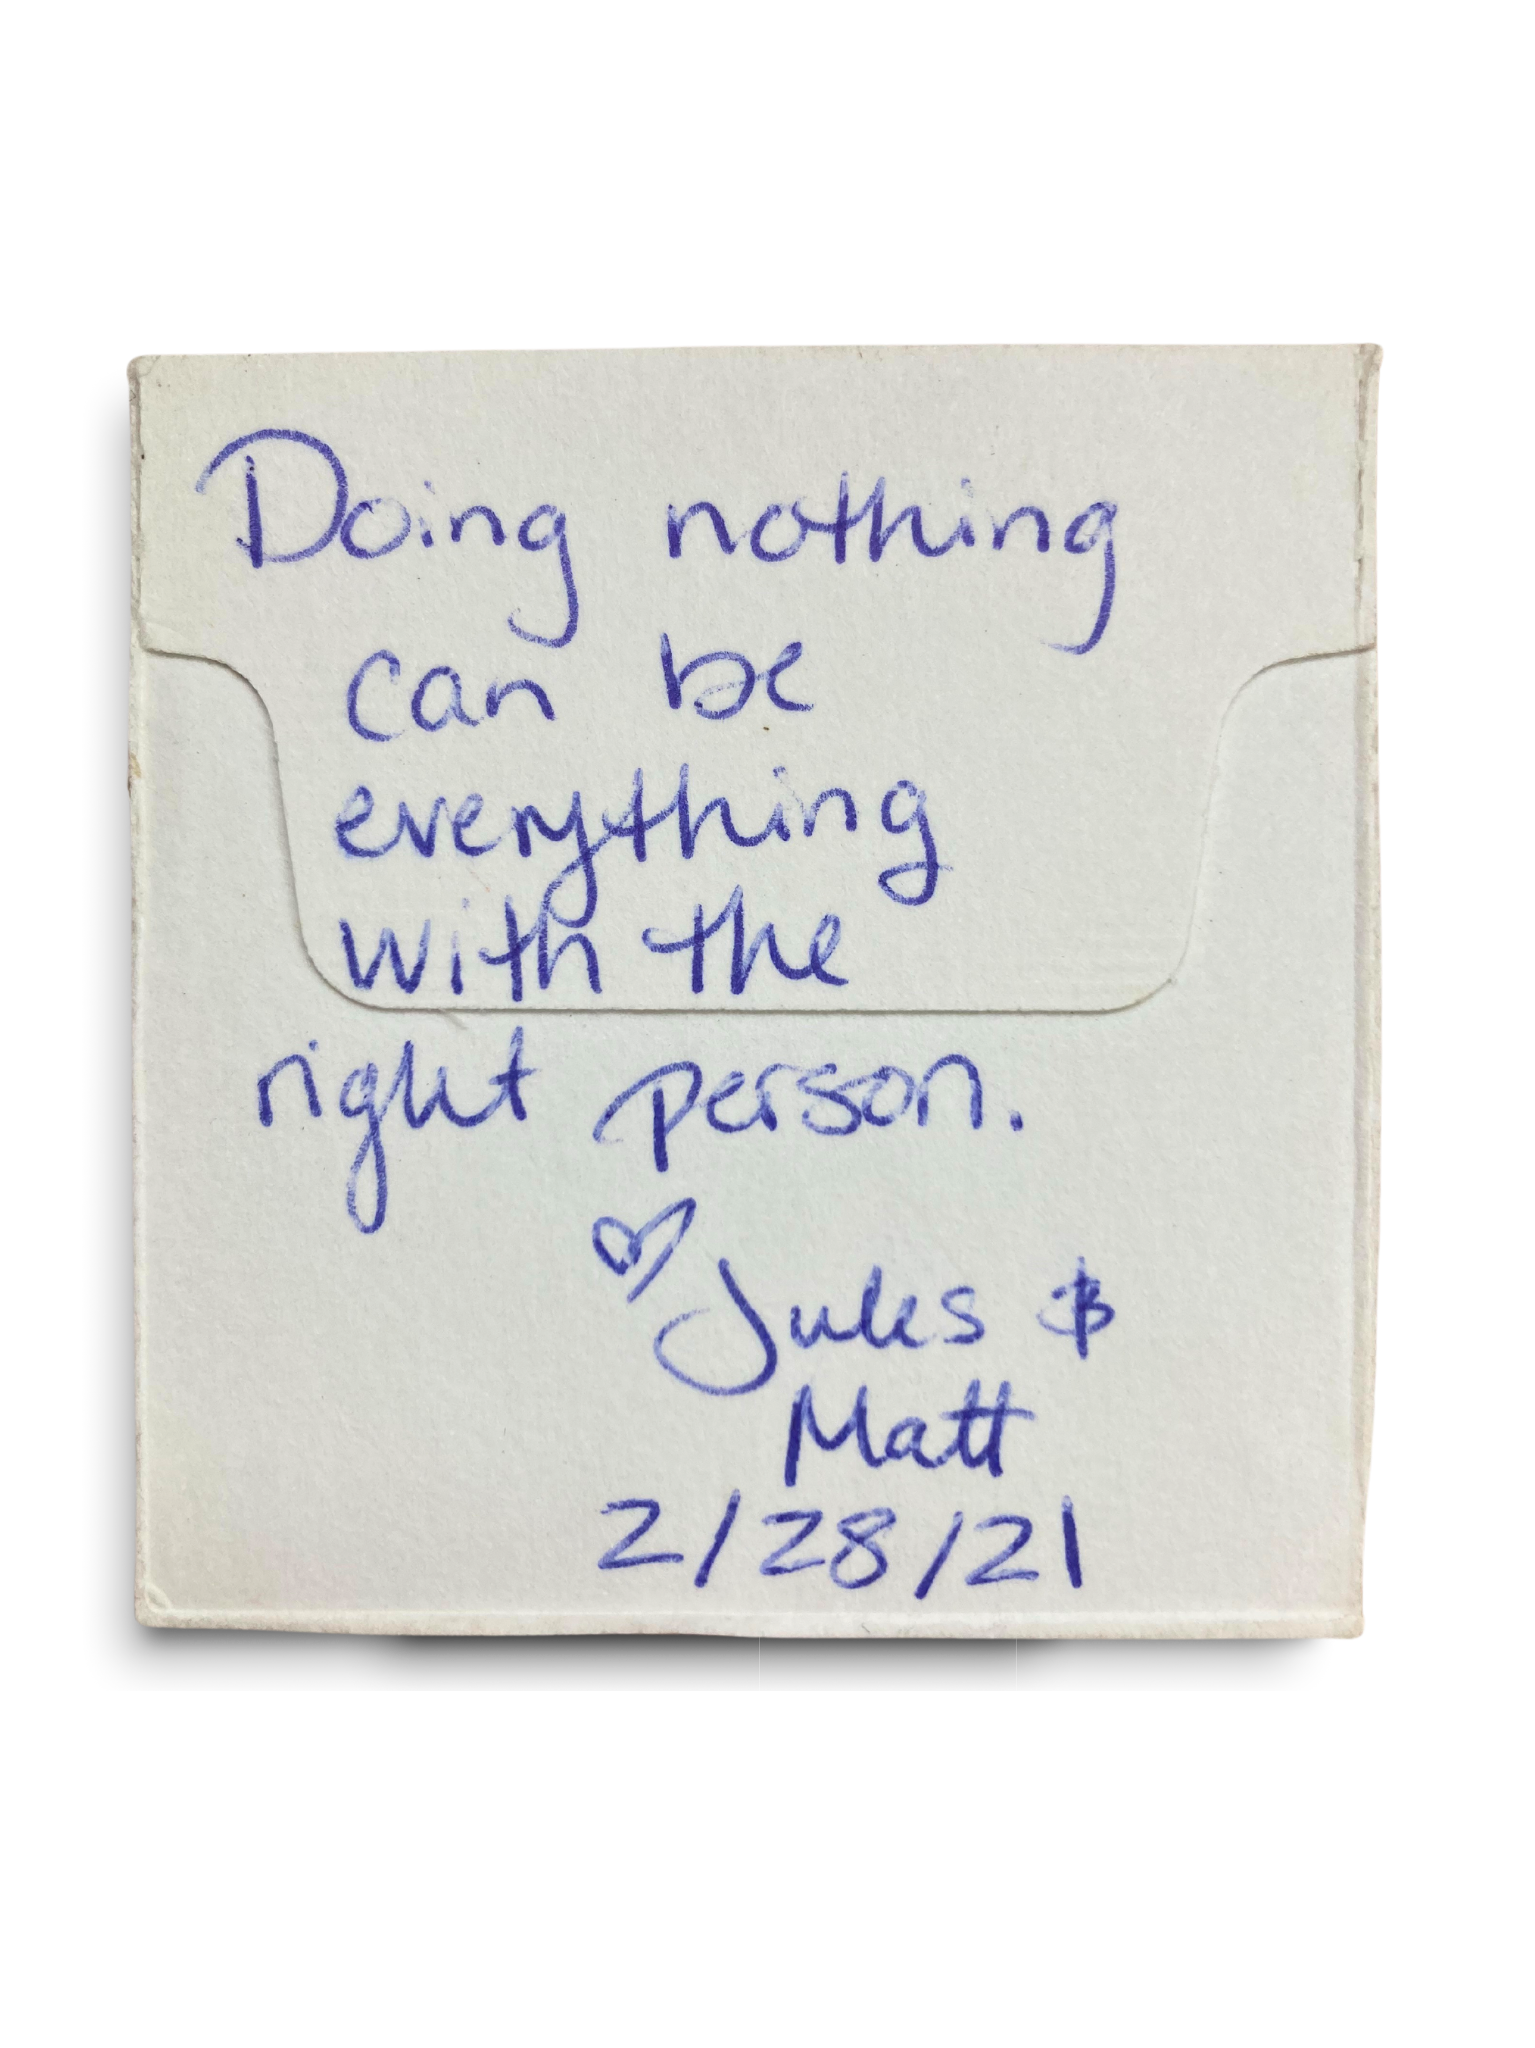 Doing nothing
can be
everything
with the
right person.
♡ Jules &
Matt
2/28/21